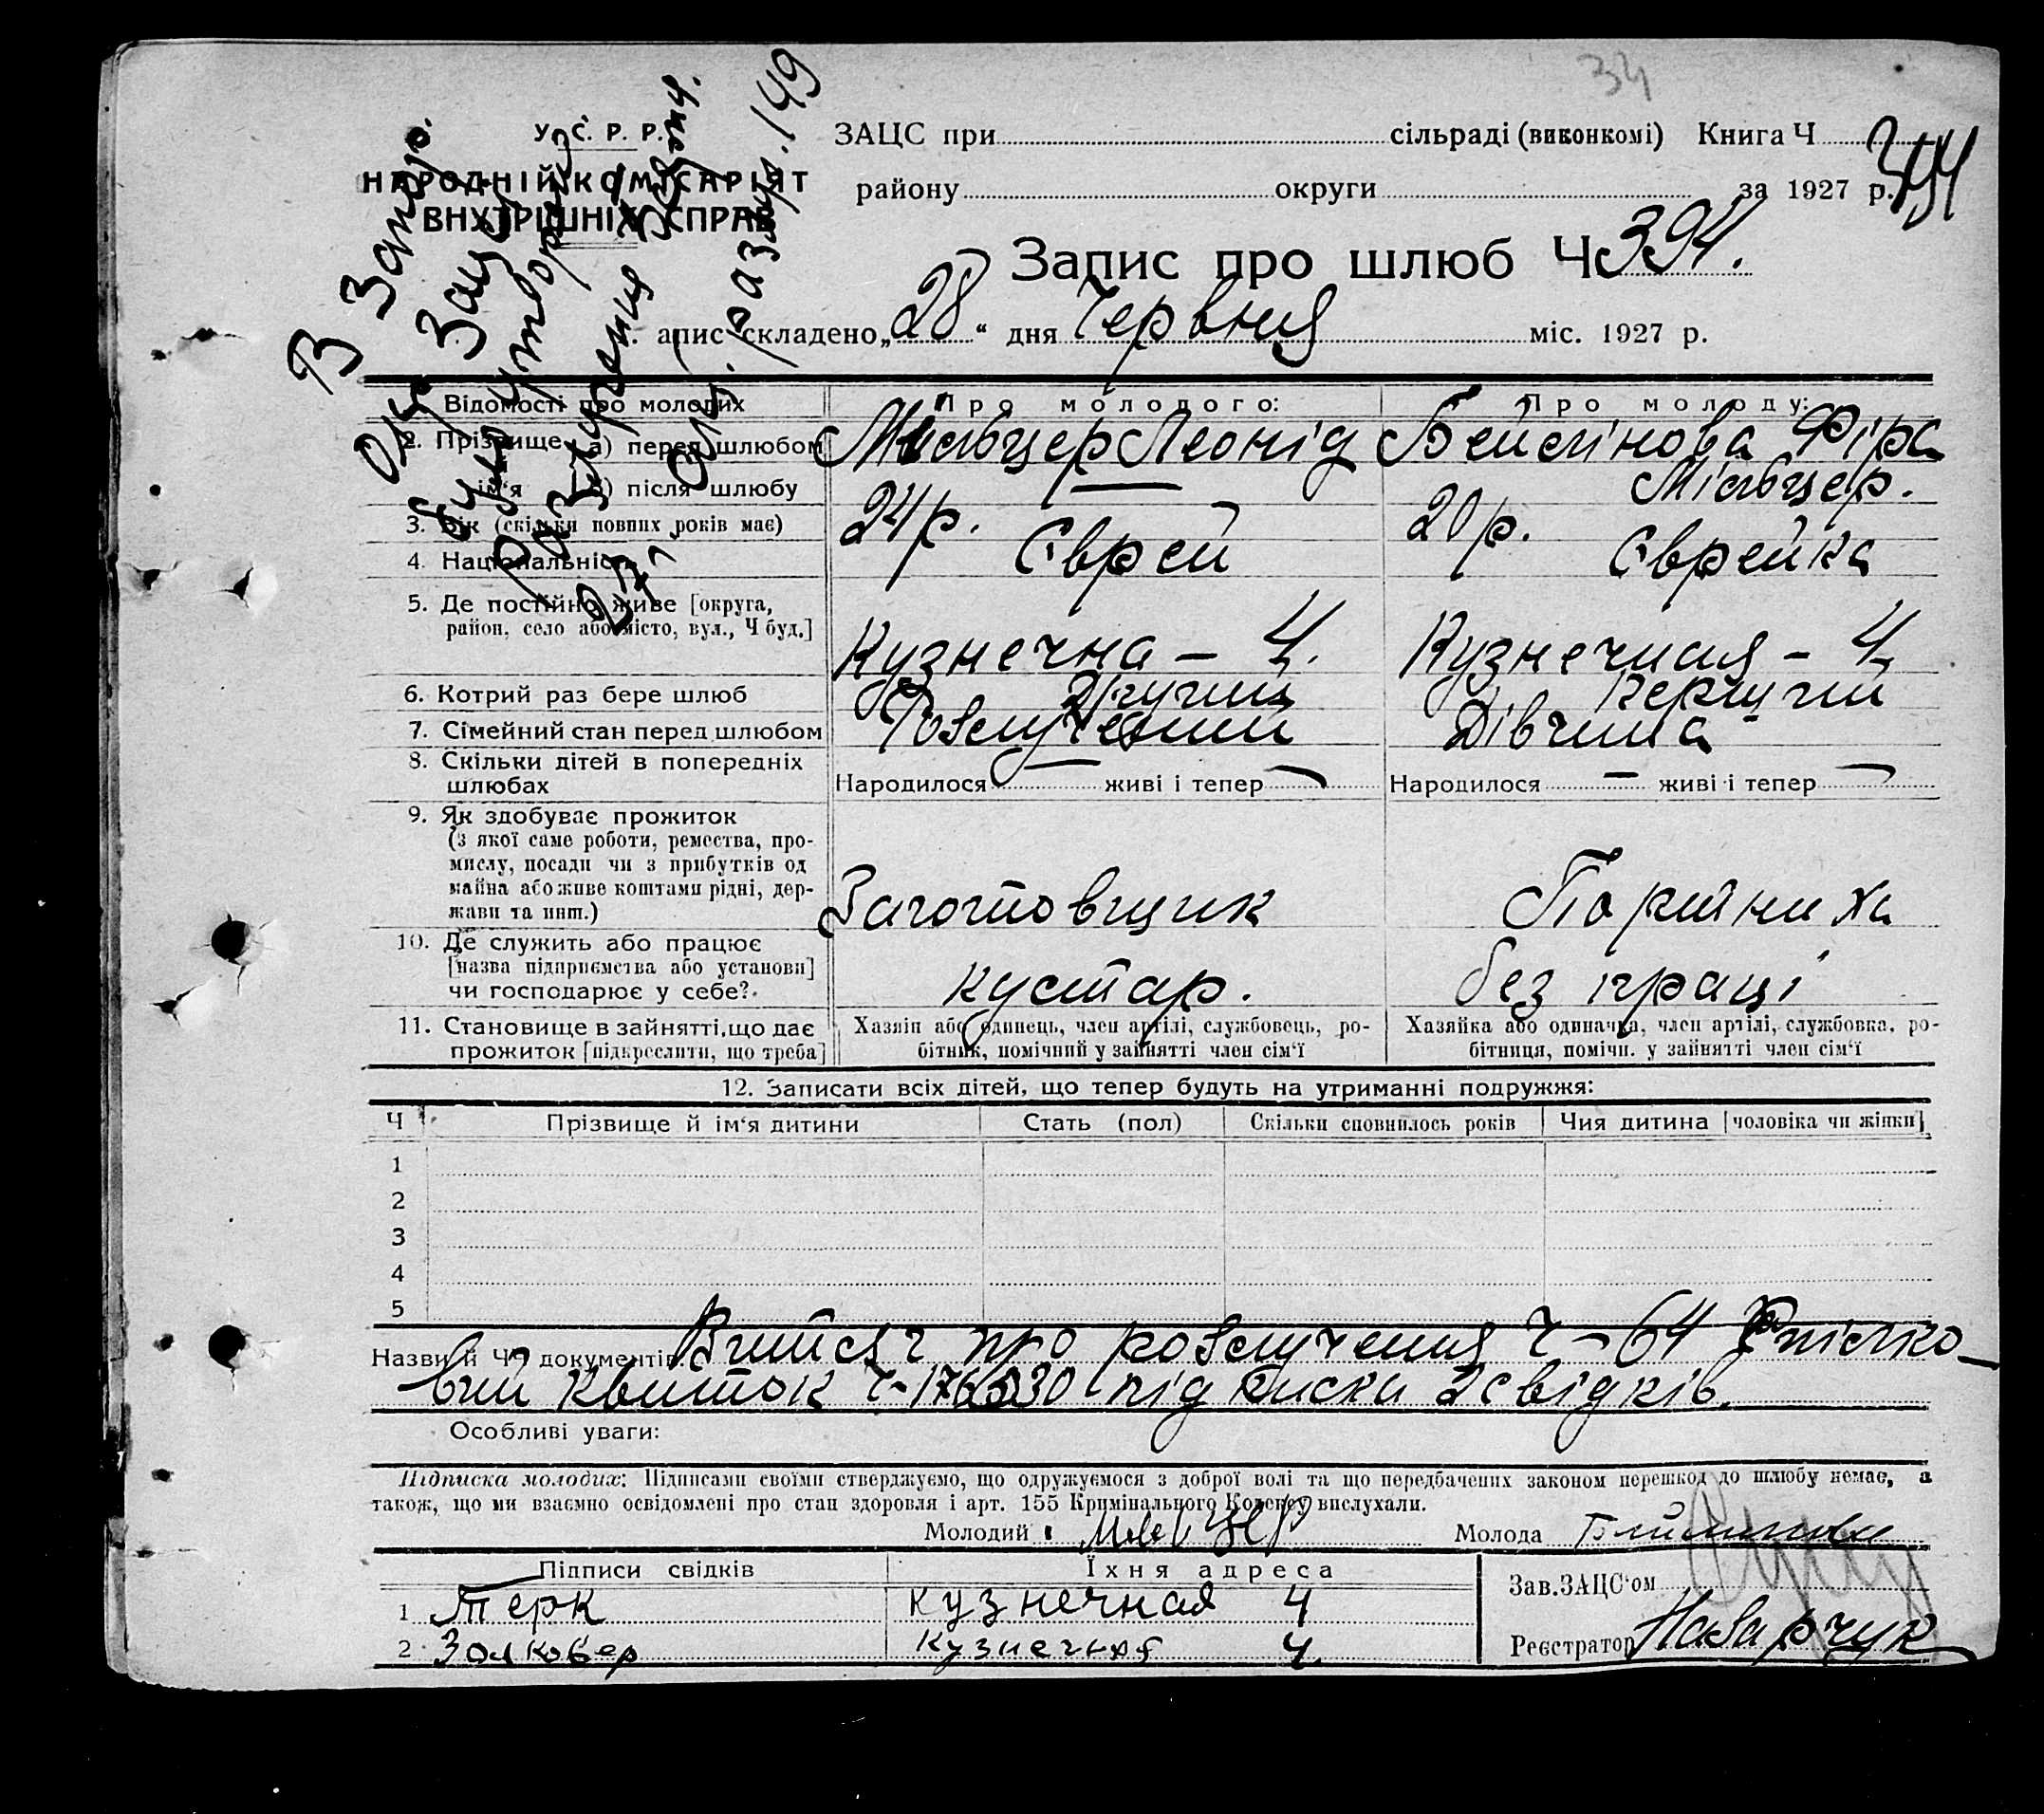 34
У. С. Р. Р.
НАРОДНІЙ КОМІСАРІЯТ
ВНУТРІШНІХ СПРАВ
ЗАЦС при сільраді (виконкомі) Книга Ч
району округи за 1927 р.
394
Запис про шлюб Ч 394.
Запис складено „28“ дня Червня міс. 1927 р.
В Запор.
разлучения
разлуч. 149
Відомості про молодих Про молодого: Про молоду:
2. Прізвище а) перед шлюбом Мільцер Леонід Бейлінова Фіра
ім'я б) після шлюбу — Мільцер.
3. Вік (скільки повних років має) 24 р. 20 р.
4. Національність Єврей Єврейка
5. Де постійно живе [округа,
район, село або місто, вул., Ч буд.] Кузнечна – 4. Кузнечная – 4
6. Котрий раз бере шлюб Другий Перший
7. Сімейний стан перед шлюбом Розлучений Дівчина
8. Скільки дітей в попередніх
шлюбах Народилося — живі і тепер — Народилося — живі і тепер —
9. Як здобуває прожиток
(з якої саме роботи, ремества, про-
мислу, посади чи з прибутків од
майна або живе коштами рідні, дер-
жави та инш.) Заготовщик
10. Де служить або працює
[назва підприємства або установи]
чи господарює у себе? кустар. без праці
11. Становище в зайнятті, що дає
прожиток [підкреслити, що треба]
Хазяїн або одинець, член артілі, службовець, ро-
бітник, помічний у зайнятті член сім'ї
Хазяйка або одиначка, член артілі, службовка, ро-
бітниця, помічн. у зайнятті член сім'ї
12. Записати всіх дітей, що тепер будуть на утриманні подружжя:
Ч Прізвище й ім'я дитини Стать (пол) Скільки сповнилось років Чия дитина [чоловіка чи жінки]
1
2
3
4
5
Назви й Ч документів: Витяг про розлучення Ч – 64 Спілко-
вий квиток підписки 2 свідків.
Особливі уваги:
Підписка молодих: Підписами своїми стверджуємо, що одружуємося з доброї волі та що передбачених законом перешкод до шлюбу немає, а
також, що ми взаємно освідомлені про стан здоров'я і арт. 155 Кримінального Кодексу вислухали.
Молодий Мільцер Молода
Підписи свідків Їхня адреса
1 Терк Кузнечная 4
2 Кузнечная 4.
Зав. ЗАЦС'ом
Реєстратор Назарчук